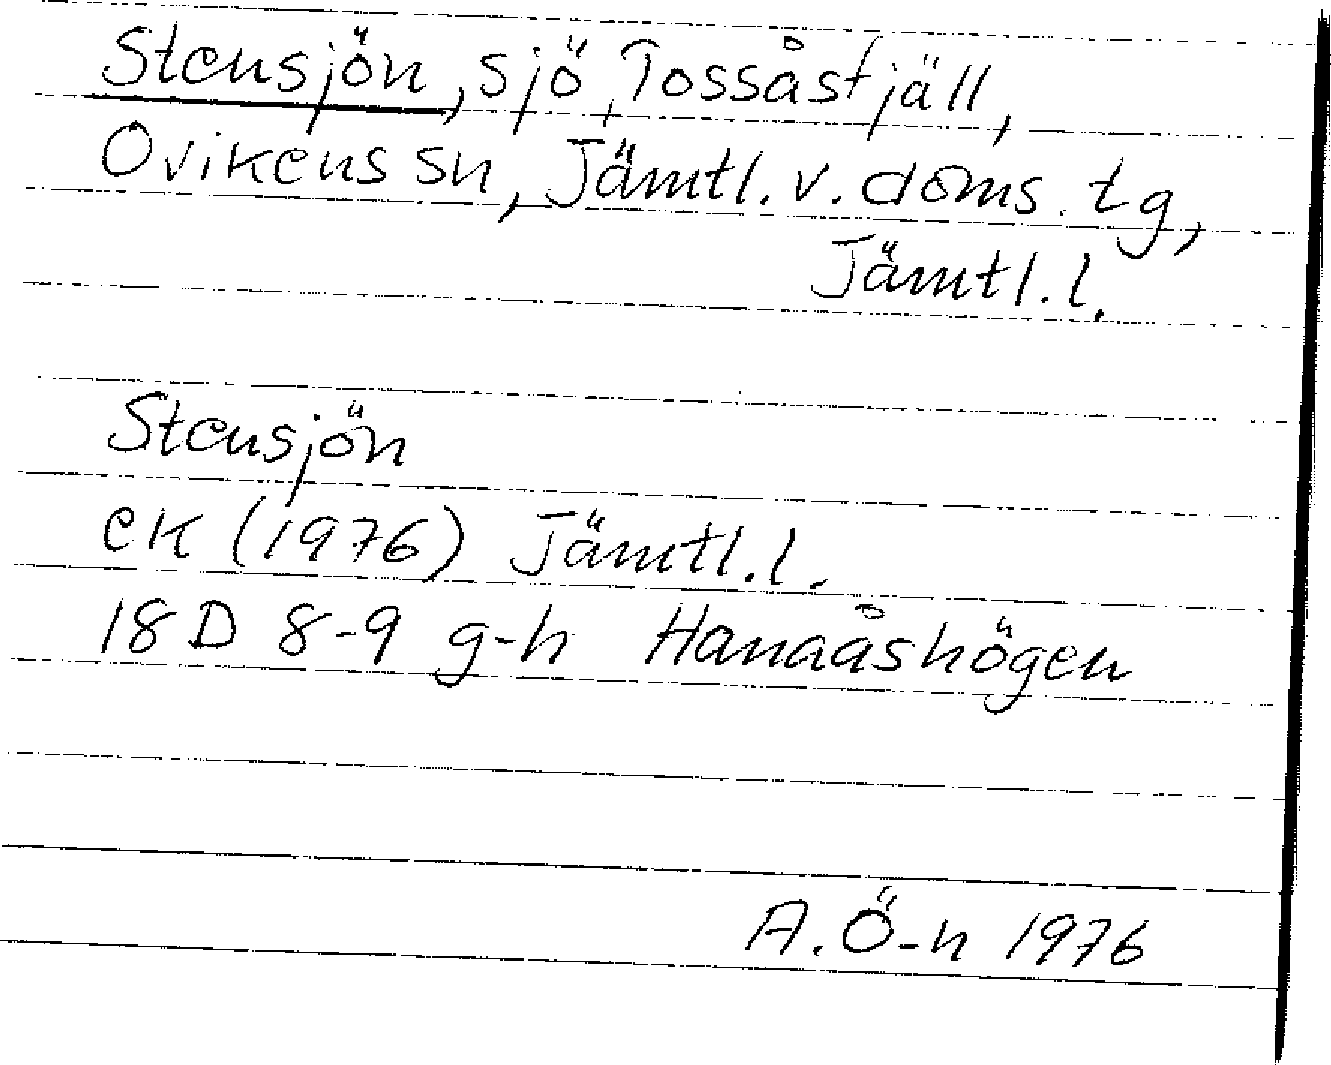 Stensjön, sjö, Tossåsfjäll,
Ovikens sn, Jämtl. v. doms. tg,
Jämtl. l.
Stensjön
ek (1976) Jämtl. l.
18 D 8-9 g-h Hanaåshögen
A. Ö-n 1976